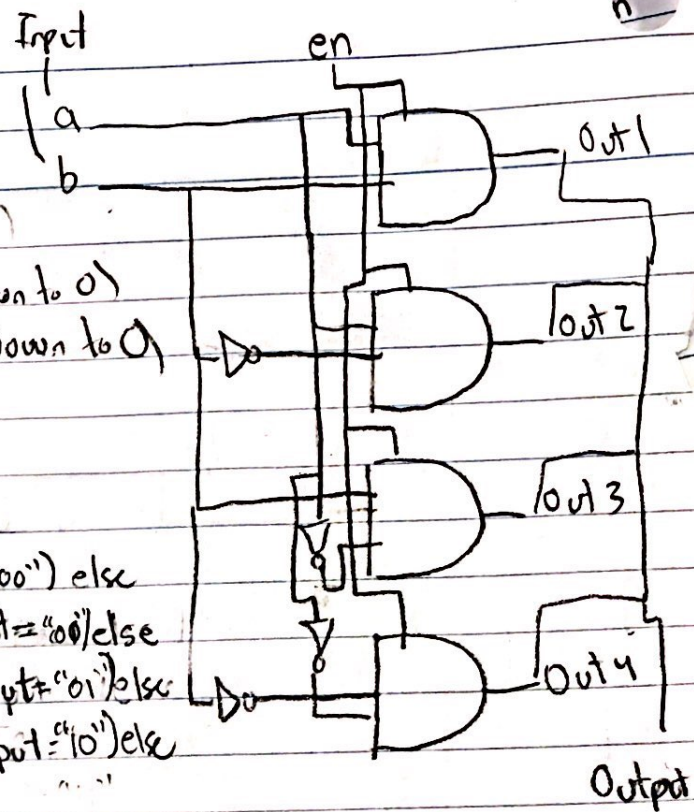 n
Input
en
a
Out1
b
n to 0)
down to 0)
Out2
Out3
00") else
t="00")else
put="01")else
put="10")else
Out4
Output